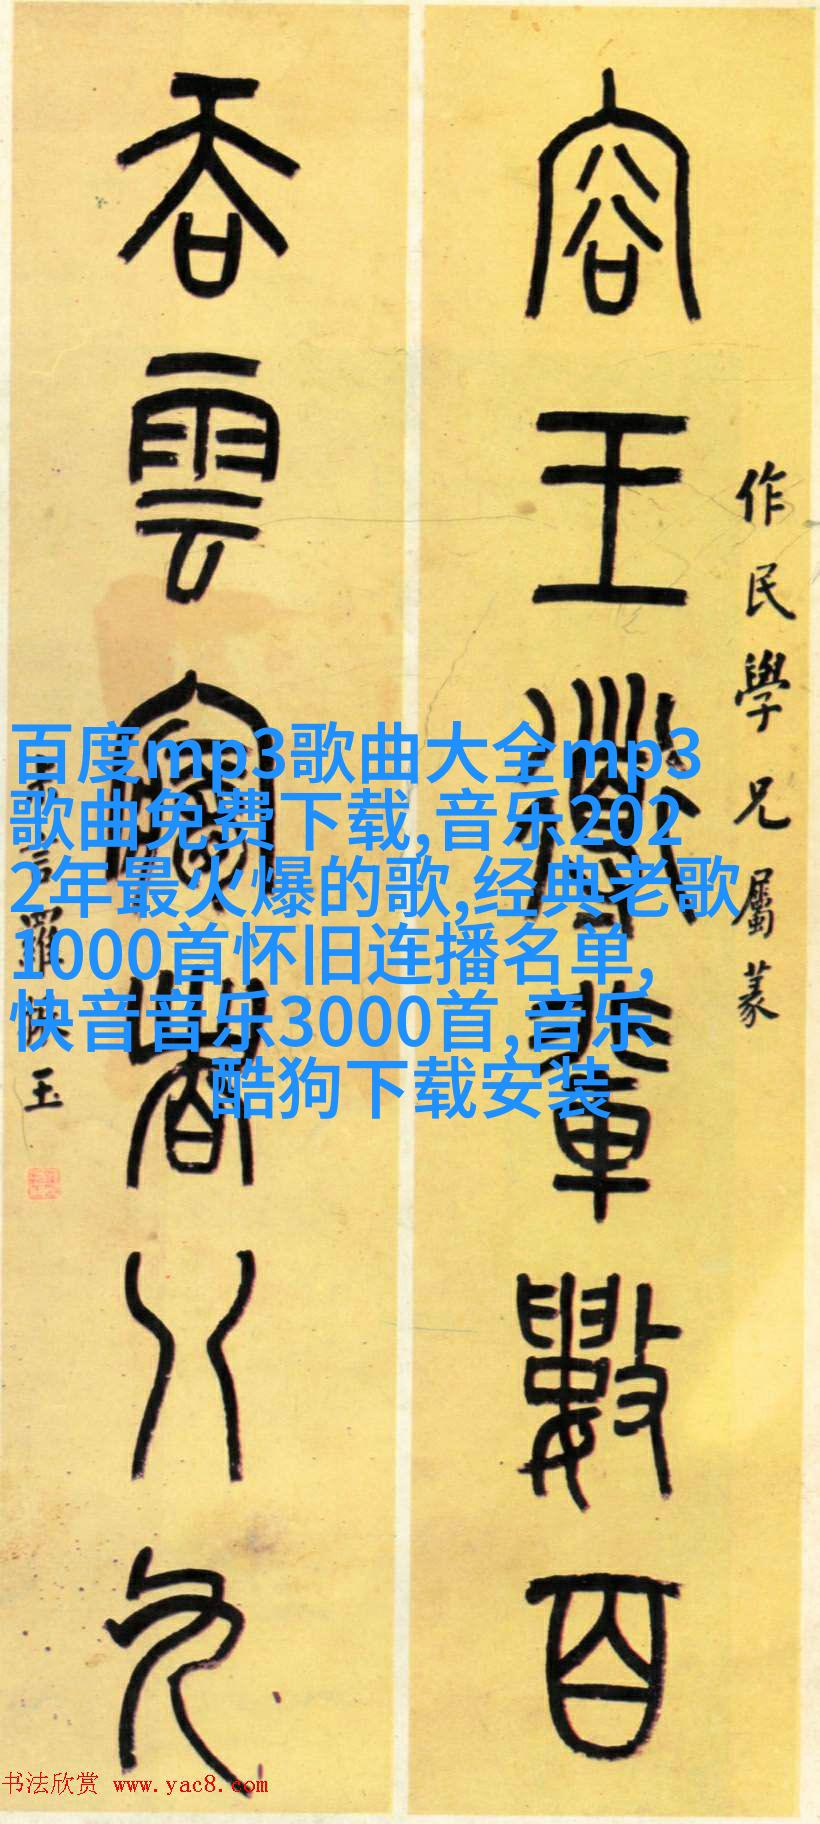 容王導輩數百
作民學兄屬篆
吞雲夢者八九
百度mp3歌曲大全mp3
歌曲免费下载,音乐202
2年最火爆的歌,经典老歌
1000首怀旧连播名单,
快音音乐3000首,音乐
酷狗下载安装
书法欣赏 www.yac8.com